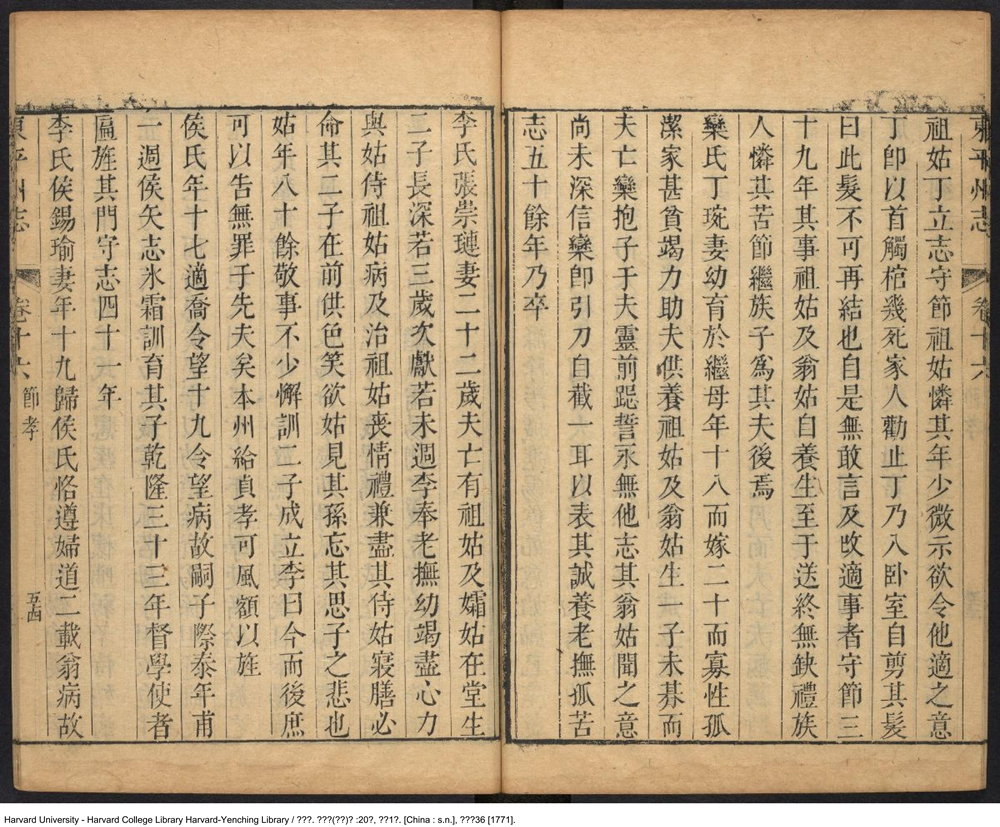 東平州志
卷十六
祖姑丁立志守節祖姑憐其年少微示欲令他適之意
丁卽以首觸棺幾死家人勸止丁乃入臥室自剪其髮
曰此髮不可再結也自是無敢言及改適事者守節三
十九年其事祖姑及翁姑自養生至于送終無缺禮族
人憐其苦節繼族子爲其夫後焉
欒氏丁琬妻幼育於繼母年十八而嫁二十而寡性孤
潔家甚貧竭力助夫供養祖姑及翁姑生一子未朞而
夫亡欒抱子于夫靈前跽誓永無他志其翁姑聞之意
尚未深信欒卽引刀自截一耳以表其誠養老撫孤苦
志五十餘年乃卒
李氏張崇璉妻二十二歲夫亡有祖姑及孀姑在堂生
二子長深若三歲次獻若未週李奉老撫幼竭盡心力
與姑侍祖姑病及治祖姑喪情禮兼盡其侍姑寢膳必
命其二子在前供色笑欲姑見其孫忘其思子之悲也
姑年八十餘敬事不少懈訓二子成立李曰今而後庶
可以告無罪于先夫矣本州給貞孝可風額以旌
侯氏年十七適喬令望十九令望病故嗣子際泰年甫
一週侯矢志氷霜訓育其子乾隆三十三年督學使者
匾旌其門守志四十一年
李氏侯錫瑜妻年十九歸侯氏恪遵婦道二載翁病故
東平州志
卷十六
節孝
五十四
Harvard University - Harvard College Library Harvard-Yenching Library / ???. ???(??)? :20?, ??1?. [China : s.n.], ???36 [1771].